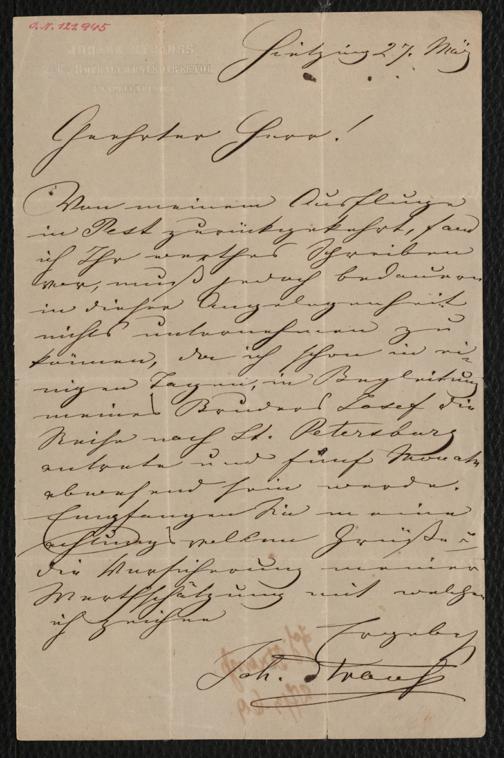 O.N. 122945
JOHANN STRAUSS
Hietzing 27. März
Geehrter Herr!
Von meinem Ausfluge
in Pest zurückgekehrt, fand
ich Ihr werthes Schreiben
vor, muß jedoch bedauern
in dieser Angelegenheit
nichts unternehmen zu
können, da ich schon in ei-
nigen Tagen, in Begleitung
meines Bruders Josef die
Reise nach St. Petersburg
antrete und fünf Monate
abwesend sein werde.
Empfangen Sie meine
achtungsvollen Grüße u
die Versicherung meiner
Werthschätzung mit welcher
ich zeichne
Ergebenst
Joh. Strauß